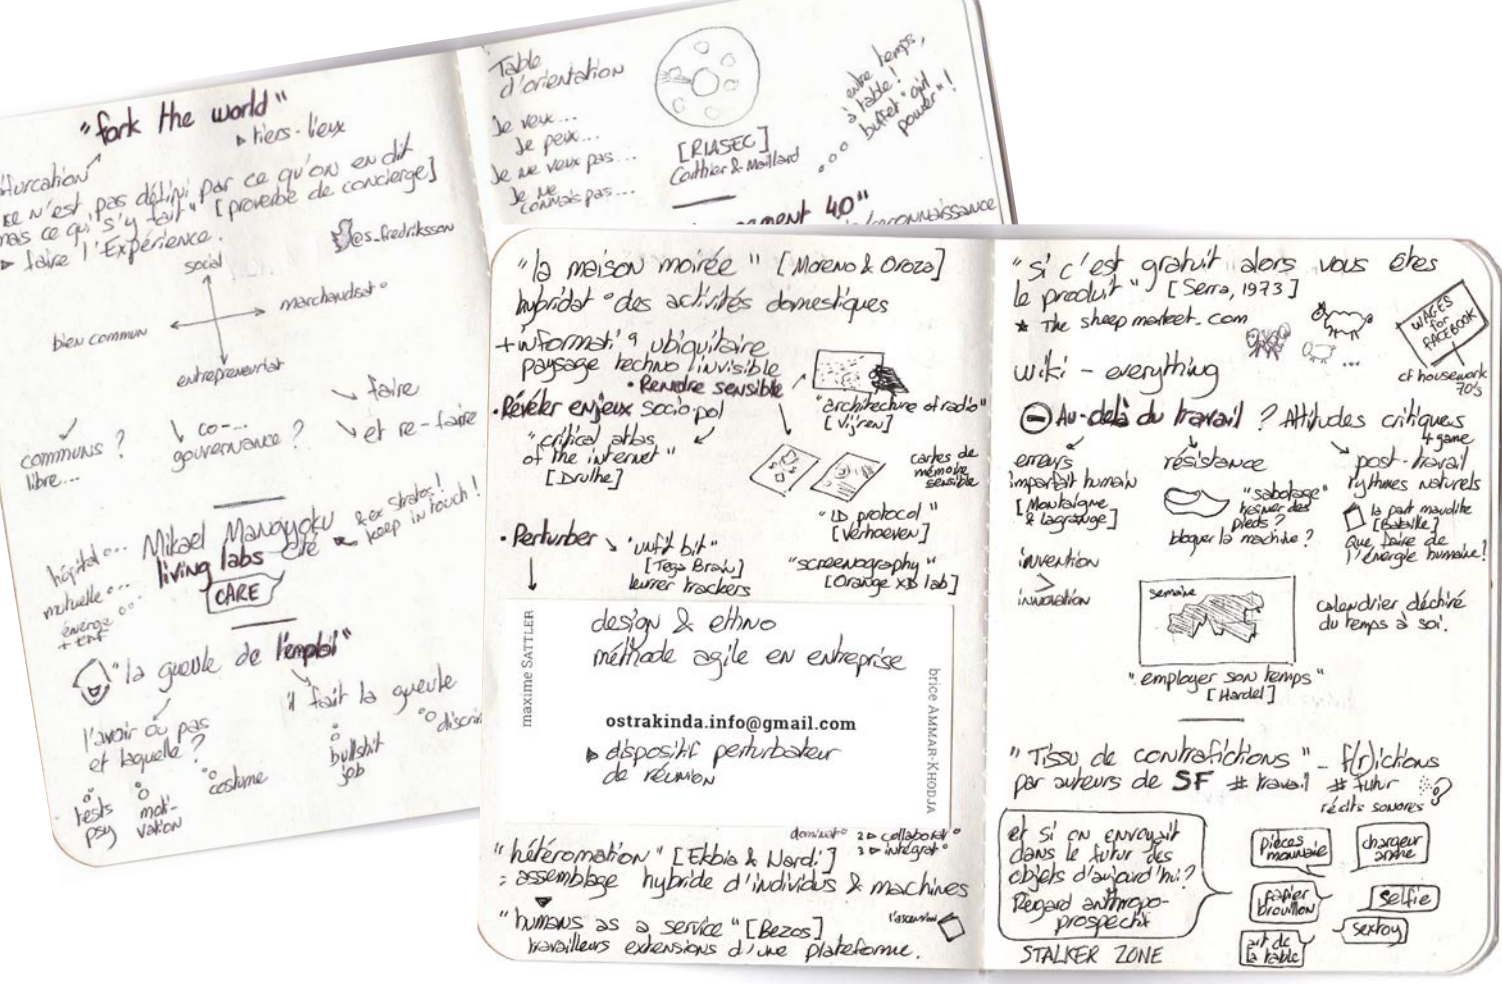 "fork the world"
▸ tiers-lieux
ce n'est pas défini par ce qu'on en dit
mais ce qui s'y fait" [proverbe de concierge]
▸ faire l'Expérience.
@s_fredriksson
social
marchandisat°
bien commun
entrepreneuriat
communs ?
libre...
co-...
gouvernance ?
faire
et re-faire
hôpital °...
mutuelle °...
énergie
Mikael Manoyoku
living labs
CARE
& ex Stratos!
keep in touch!
"la gueule de l'emploi"
l'avoir ou pas
et laquelle ?
il fait la gueule
tests
psy
moti-
vation
costume
bullshit
job
Table
d'orientation
Je veux...
Je peux...
Je ne veux pas...
Je ne
connais pas...
[RIASEC]
entre temps,
à table!
buffet "girl
power"!
4.0"
"la maison moirée" [Moreno & Oroza]
hybridat° des activités domestiques
ubiquitaire
paysage techno invisible
• Rendre sensible
• Révéler enjeux socio-pol
"critical atlas
of the internet"
[Drulhe]
"architecture of radio"
[Vijren]
cartes de
mémoire
sensible
"ID protocol"
[Verhoeven]
• Perturber
"unfit bit"
[Tega Brain]
leurrer trackers
"screenography"
[Orange XD lab]
maxime SATTLER
design & ethno
méthode agile en entreprise
ostrakinda.info@gmail.com
▸ dispositif perturbateur
de réunion
brice AMMAR-KHODJA
dominat° 2 ▸ collaborat°
3 ▸ intégrat°
"hétéromation" [Ekbia & Nardi]
= assemblage hybride d'individus & machines
"humans as a service" [Bezos]
travailleurs extensions d'une plateforme.
"si c'est gratuit alors vous êtes
le produit" [Serra, 1973]
★ The sheep market.com
WAGES
for
FACEBOOK
cf housework
70's
wiki - everything
Au-delà du travail ? Attitudes critiques
erreurs
imparfait humain
[Montaigne
& Lagrange]
invention
>
innovation
résistance
"sabotage"
freiner des
pieds ?
bloquer la machine ?
post-travail
rythmes naturels
la part maudite
[Bataille]
Que faire de
l'énergie humaine!
semaine
calendrier déchiré
du temps à soi.
"employer son temps"
[Hardel]
"Tissu de contrafictions" _ f(r)ictions
par auteurs de SF # travail # futur
récits sonores
et si on envoyait
dans le futur des
objets d'aujourd'hui?
Regard anthropo-
prospectif
pièces
monnaie
chargeur
papier
brouillon
selfie
sextoy
art de
la table
STALKER ZONE